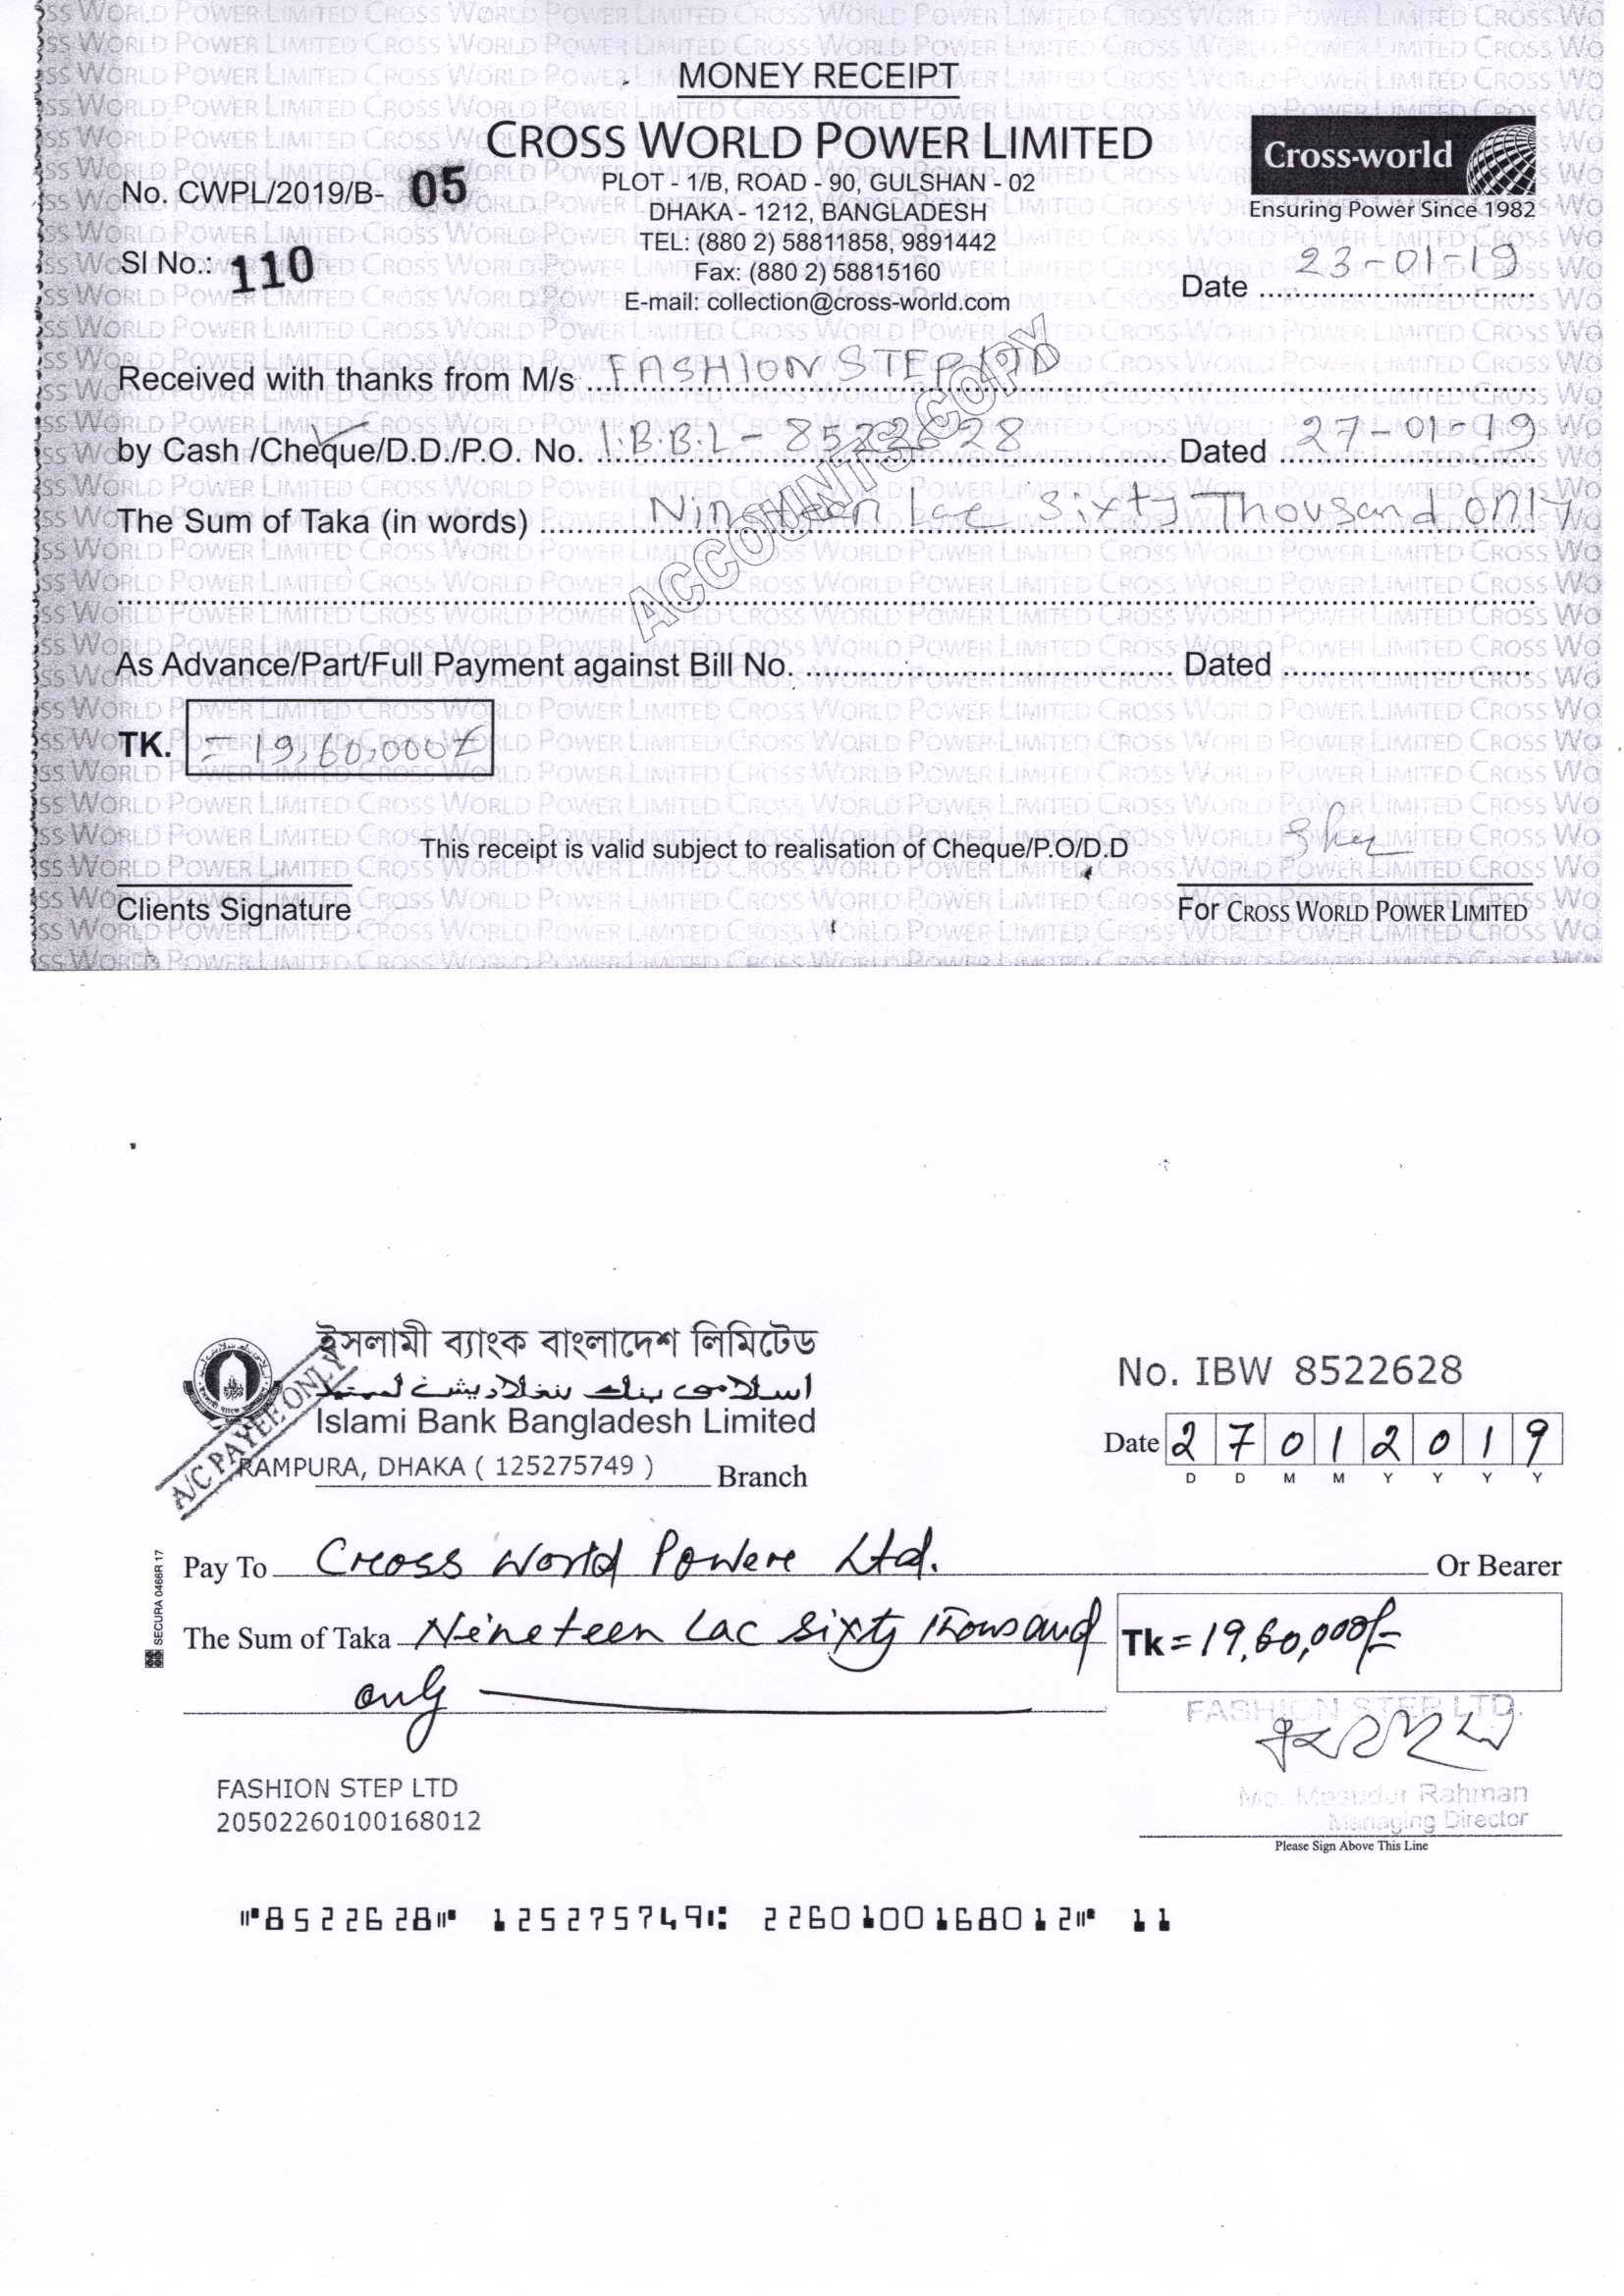 MONEY RECEIPT
CROSS WORLD POWER LIMITED
Cross-world
Ensuring Power Since 1982
No. CWPL/2019/B- 05
PLOT - 1/B, ROAD - 90, GULSHAN - 02
DHAKA - 1212, BANGLADESH
TEL: (880 2) 58811858, 9891442
Sl No.: 110
Fax: (880 2) 58815160
E-mail: collection@cross-world.com
Date 23-01-19
Received with thanks from M/s FASHION STEP LTD
by Cash /Cheque/D.D./P.O. No. I.B.B.L - 8522628 Dated 27-01-19
The Sum of Taka (in words) Nineteen Lac Sixty Thousand only
ACCOUNTS COPY
As Advance/Part/Full Payment against Bill No. Dated
TK. = 19,60,000/=
This receipt is valid subject to realisation of Cheque/P.O/D.D
Clients Signature
For CROSS WORLD POWER LIMITED
ইসলামী ব্যাংক বাংলাদেশ লিমিটেড
اسلامي بنك بنغلاديش لميتيد
Islami Bank Bangladesh Limited
A/C PAYEE ONLY
RAMPURA, DHAKA ( 125275749 ) Branch
No. IBW 8522628
Date 2 7 0 1 2 0 1 9
D D M M Y Y Y Y
Pay To Cross World Power Ltd. Or Bearer
The Sum of Taka Nineteen Lac Sixty Thousand
only
Tk = 19,60,000/=
SECURA 0466R 17
FASHION STEP LTD.
Md. Masudur Rahman
Managing Director
Please Sign Above This Line
FASHION STEP LTD
20502260100168012
⑈8522628⑈ 125275749⑆ 2260100168012⑈ 11